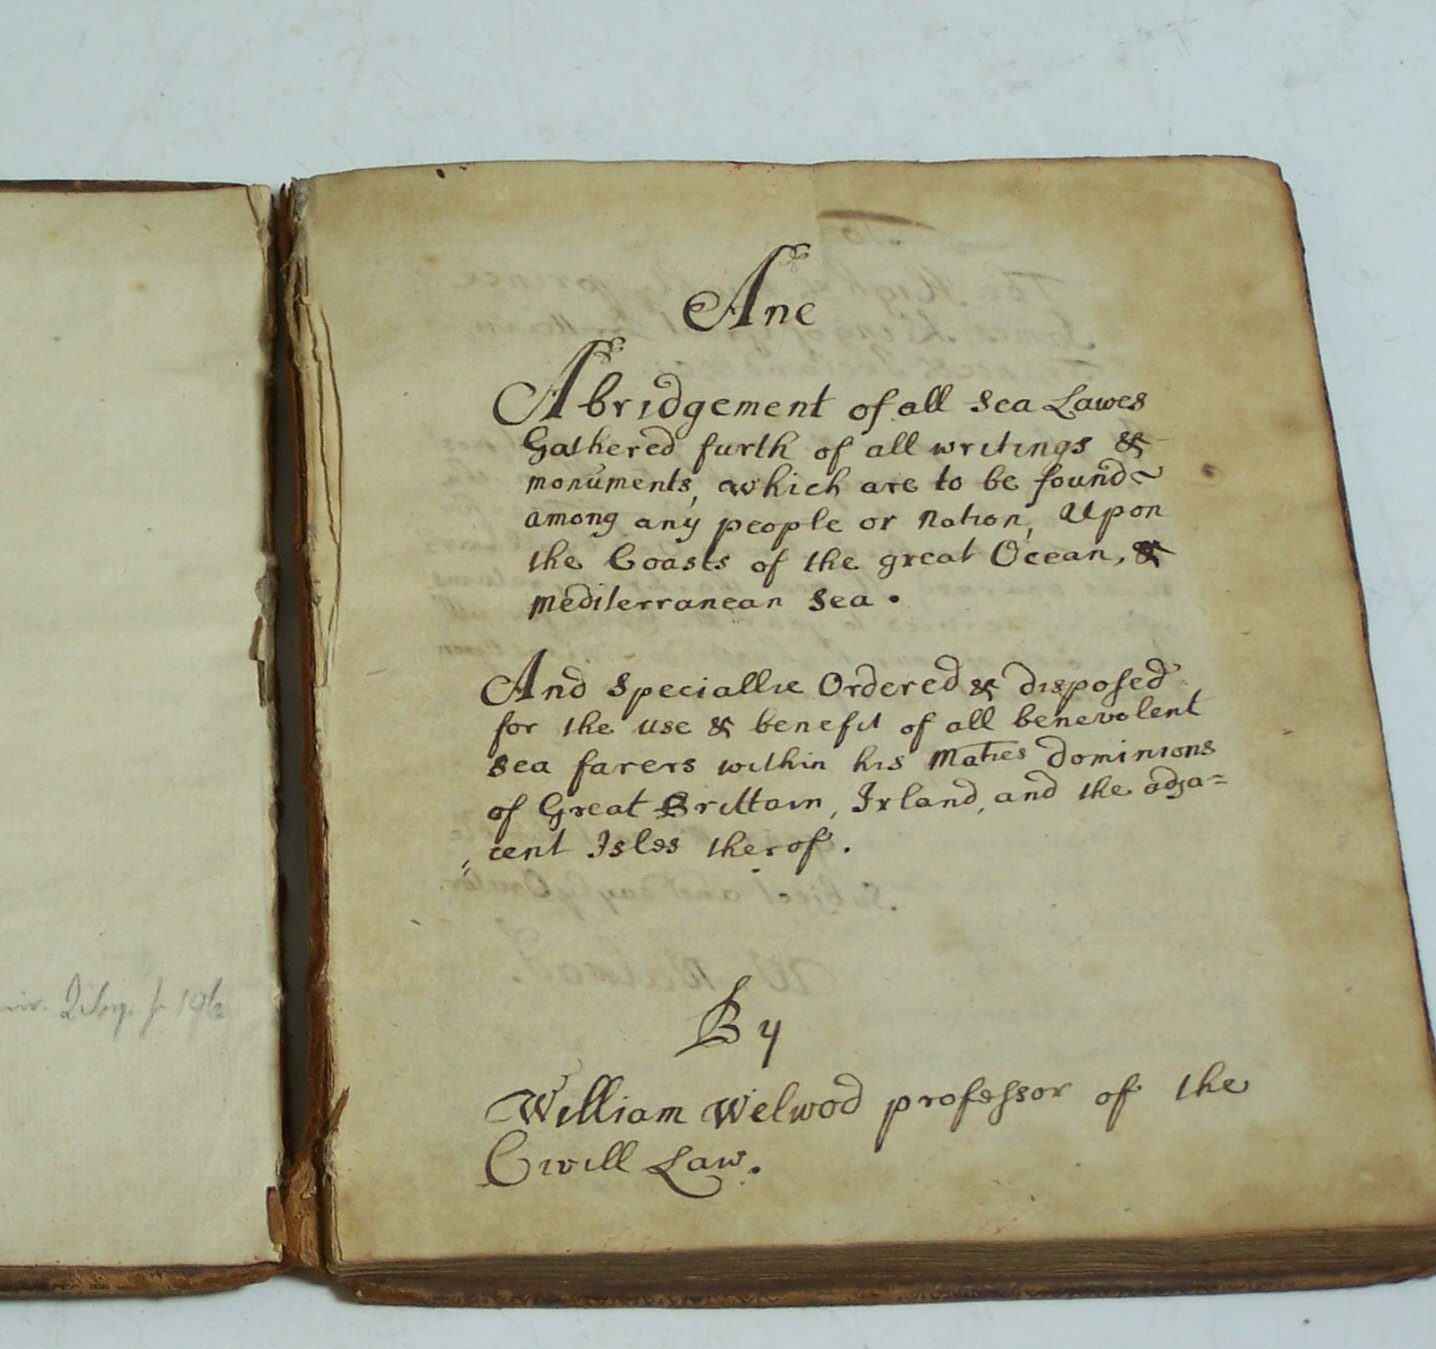 Ane
Abridgement of all Sea Lawes
Gathered furth of all writings &
monuments, which are to be found
among any people or nation, Upon
the Coasts of the great Ocean, &
mediterranean Sea.
And Speciallie Ordered & disposed
for the use & benefit of all benevolent
sea farers within his Maties dominions
of Great Brittain, Irland, and the adja=
=cent Isles therof.
By
William Welwod professor of the
Civill Law.